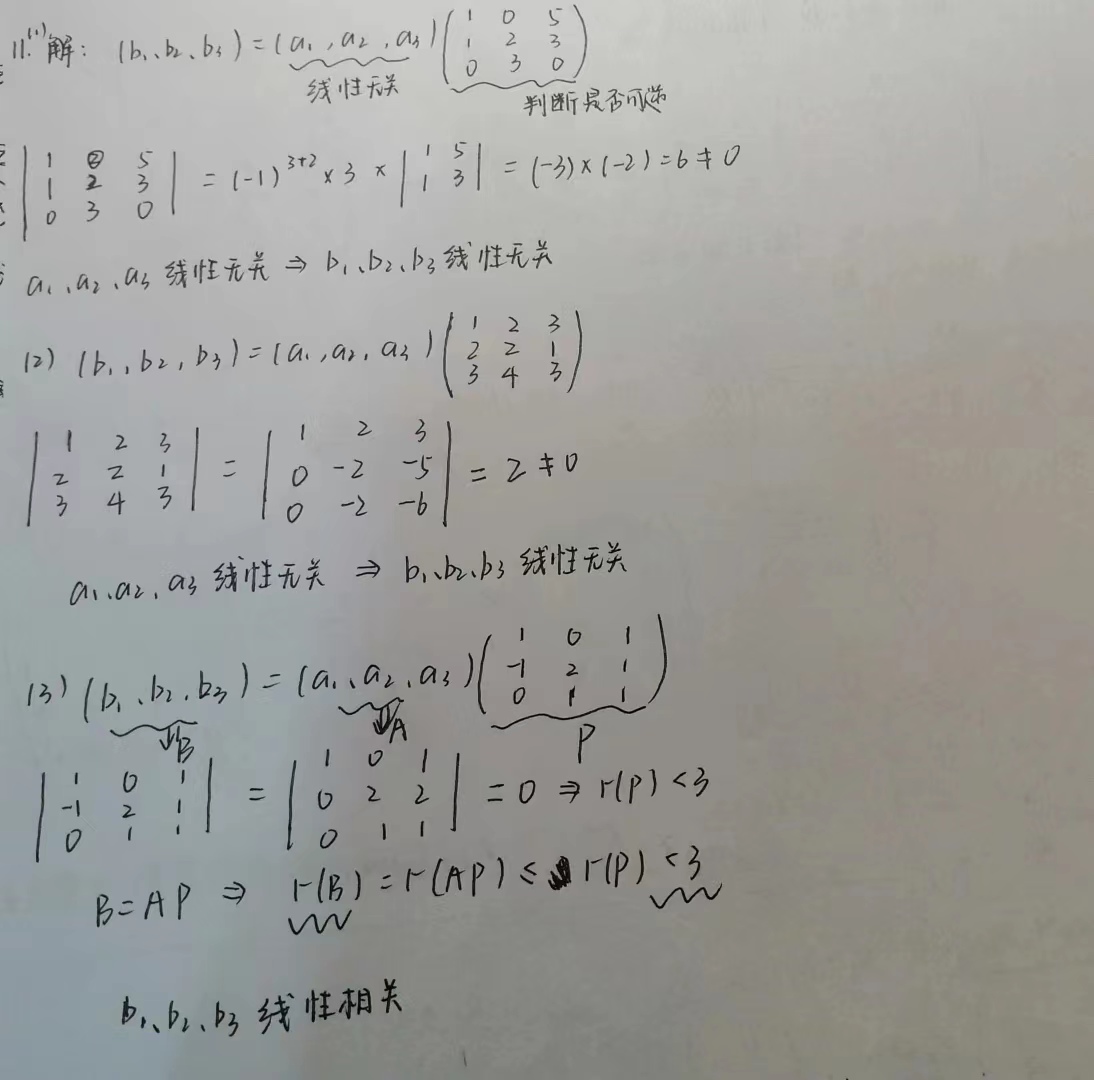 11.(1) 解: (b₁、b₂、b₃) = (a₁, a₂, a₃) ( 1 0 5
1 2 3
0 3 0 )
线性无关 判断是否可逆
| 1 0 5
1 2 3
0 3 0 | = (-1)³⁺² × 3 × | 1 5
1 3 | = (-3)×(-2) = 6 ≠ 0
a₁、a₂、a₃ 线性无关 ⇒ b₁、b₂、b₃ 线性无关
(2) (b₁, b₂, b₃) = (a₁, a₂, a₃) ( 1 2 3
2 2 1
3 4 3 )
| 1 2 3
2 2 1
3 4 3 | = | 1 2 3
0 -2 -5
0 -2 -6 | = 2 ≠ 0
a₁、a₂、a₃ 线性无关 ⇒ b₁、b₂、b₃ 线性无关
(3) (b₁、b₂、b₃) = (a₁、a₂、a₃) ( 1 0 1
-1 2 1
0 1 1 )
⇓B ⇓A P
| 1 0 1
-1 2 1
0 1 1 | = | 1 0 1
0 2 2
0 1 1 | = 0 ⇒ r(P) < 3
B = AP ⇒ r(B) = r(AP) ≤ r(P) < 3
b₁、b₂、b₃ 线性相关